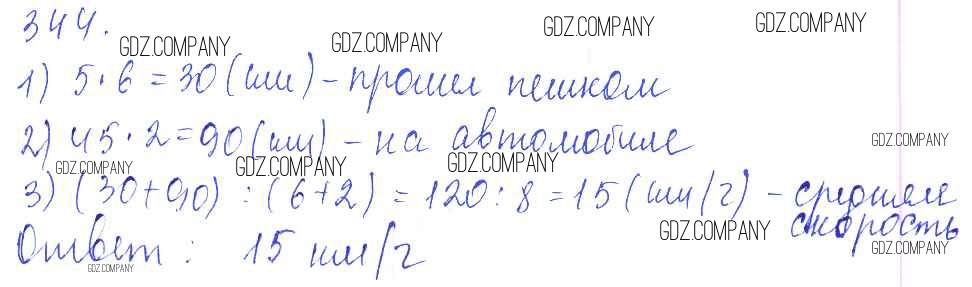 344.
GDZ.COMPANY GDZ.COMPANY GDZ.COMPANY GDZ.COMPANY
1) 5·6=30 (км) – прошел пешком
2) 45·2=90 (км) – на автомобиле GDZ.COMPANY
GDZ.COMPANY GDZ.COMPANY GDZ.COMPANY
3) (30+90) : (6+2) = 120:8=15 (км/ч) – средняя
скорость
GDZ.COMPANY
Ответ : 15 км/ч GDZ.COMPANY
GDZ.COMPANY